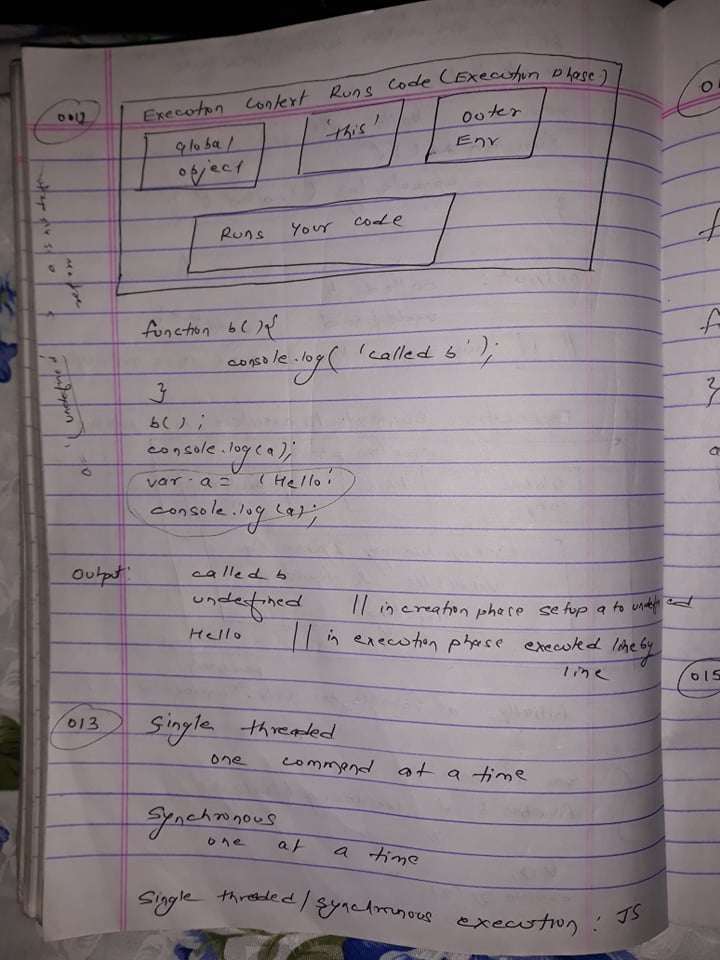 0012
Execution Context Runs Code (Execution phase)
global
object
'this'
outer
Env
Runs your code
function b(){
console.log( 'called b');
}
b();
console.log(a);
var a = 'Hello'
console.log (a);
a =
undefined
a is not
Output: called b
undefined // in creation phase setup a to undefined
Hello // in execution phase executed line by
line
013 Single threaded
one command at a time
Synchronous
one at a time
Single threded / synchronous execution : JS
015